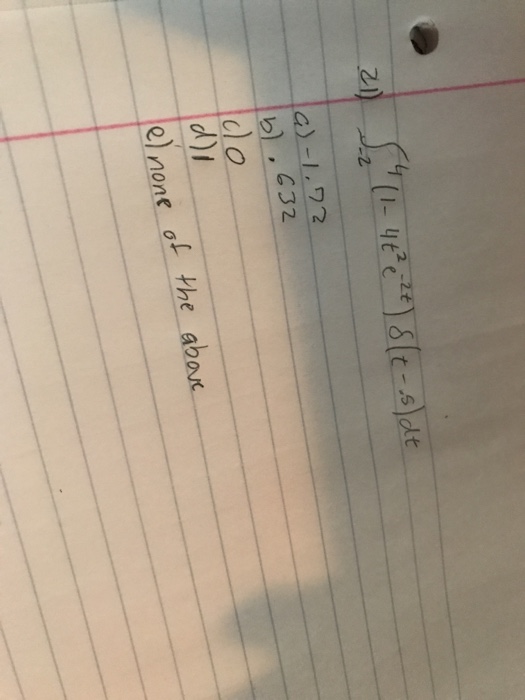 21) ∫₋₂⁴ (1 - 4t²e⁻²ᵗ) δ(t - .5) dt
a) -1.72
b) .632
c) 0
d) 1
e) none of the above